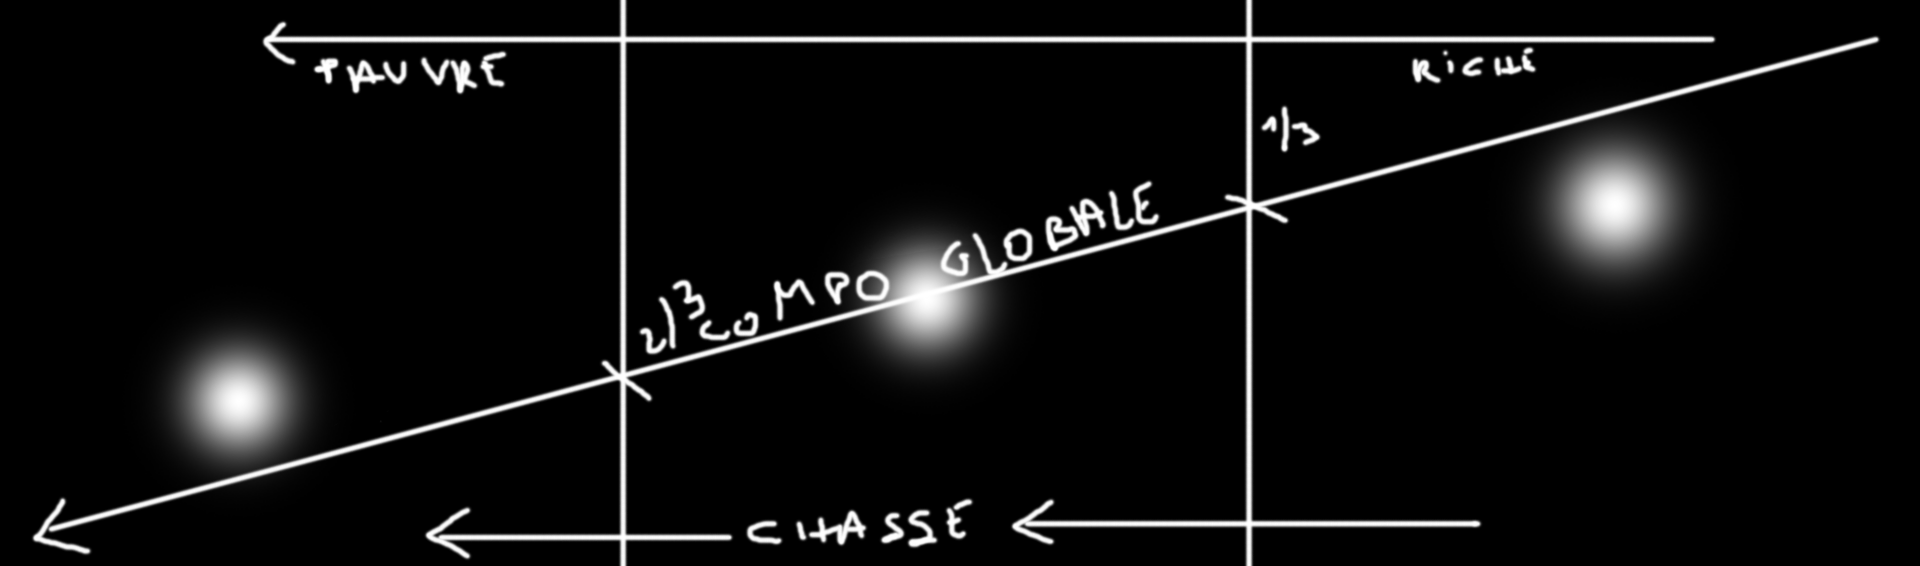 PAUVRE
RICHE
1/3
2/3
COMPO GLOBALE
CHASSE